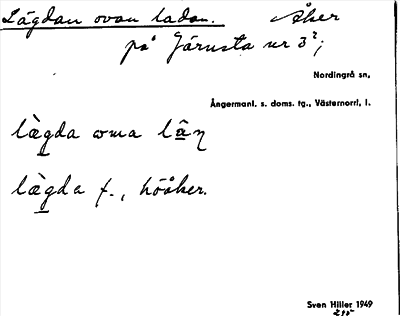 Lägdan ovan ladan. Åker
på Järnsta nr 3²;
Nordingrå sn,
Ångermanl. s. doms. tg., Västernorrl, l.
lègda ovna lâŋ
lègda f., höåker.
Sven Hiller 1949